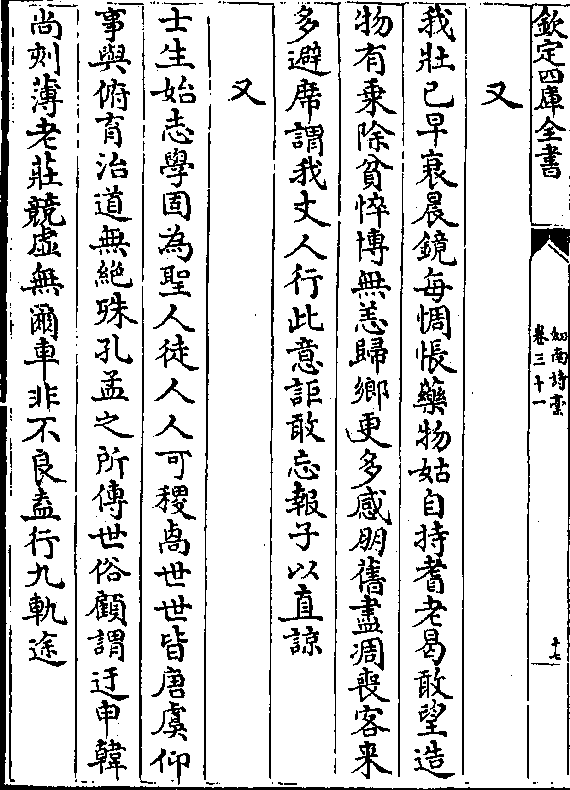 欽定四庫全書
劍南詩藁
卷三十一
十七
又
我壯已早衰晨鏡每惆悵藥物姑自持耆老曷敢望造
物有乗除貧悴博無恙歸鄉更多感朋舊盡凋喪客来
多避席謂我丈人行此意詎敢忘報子以直諒
又
士生始志學固為聖人徒人人可稷卨世世皆唐虞仰
事與俯育治道無絶殊孔孟之所傳世俗顧謂迂申韓
尚刻薄老莊競虛無爾車非不良盍行九軌途